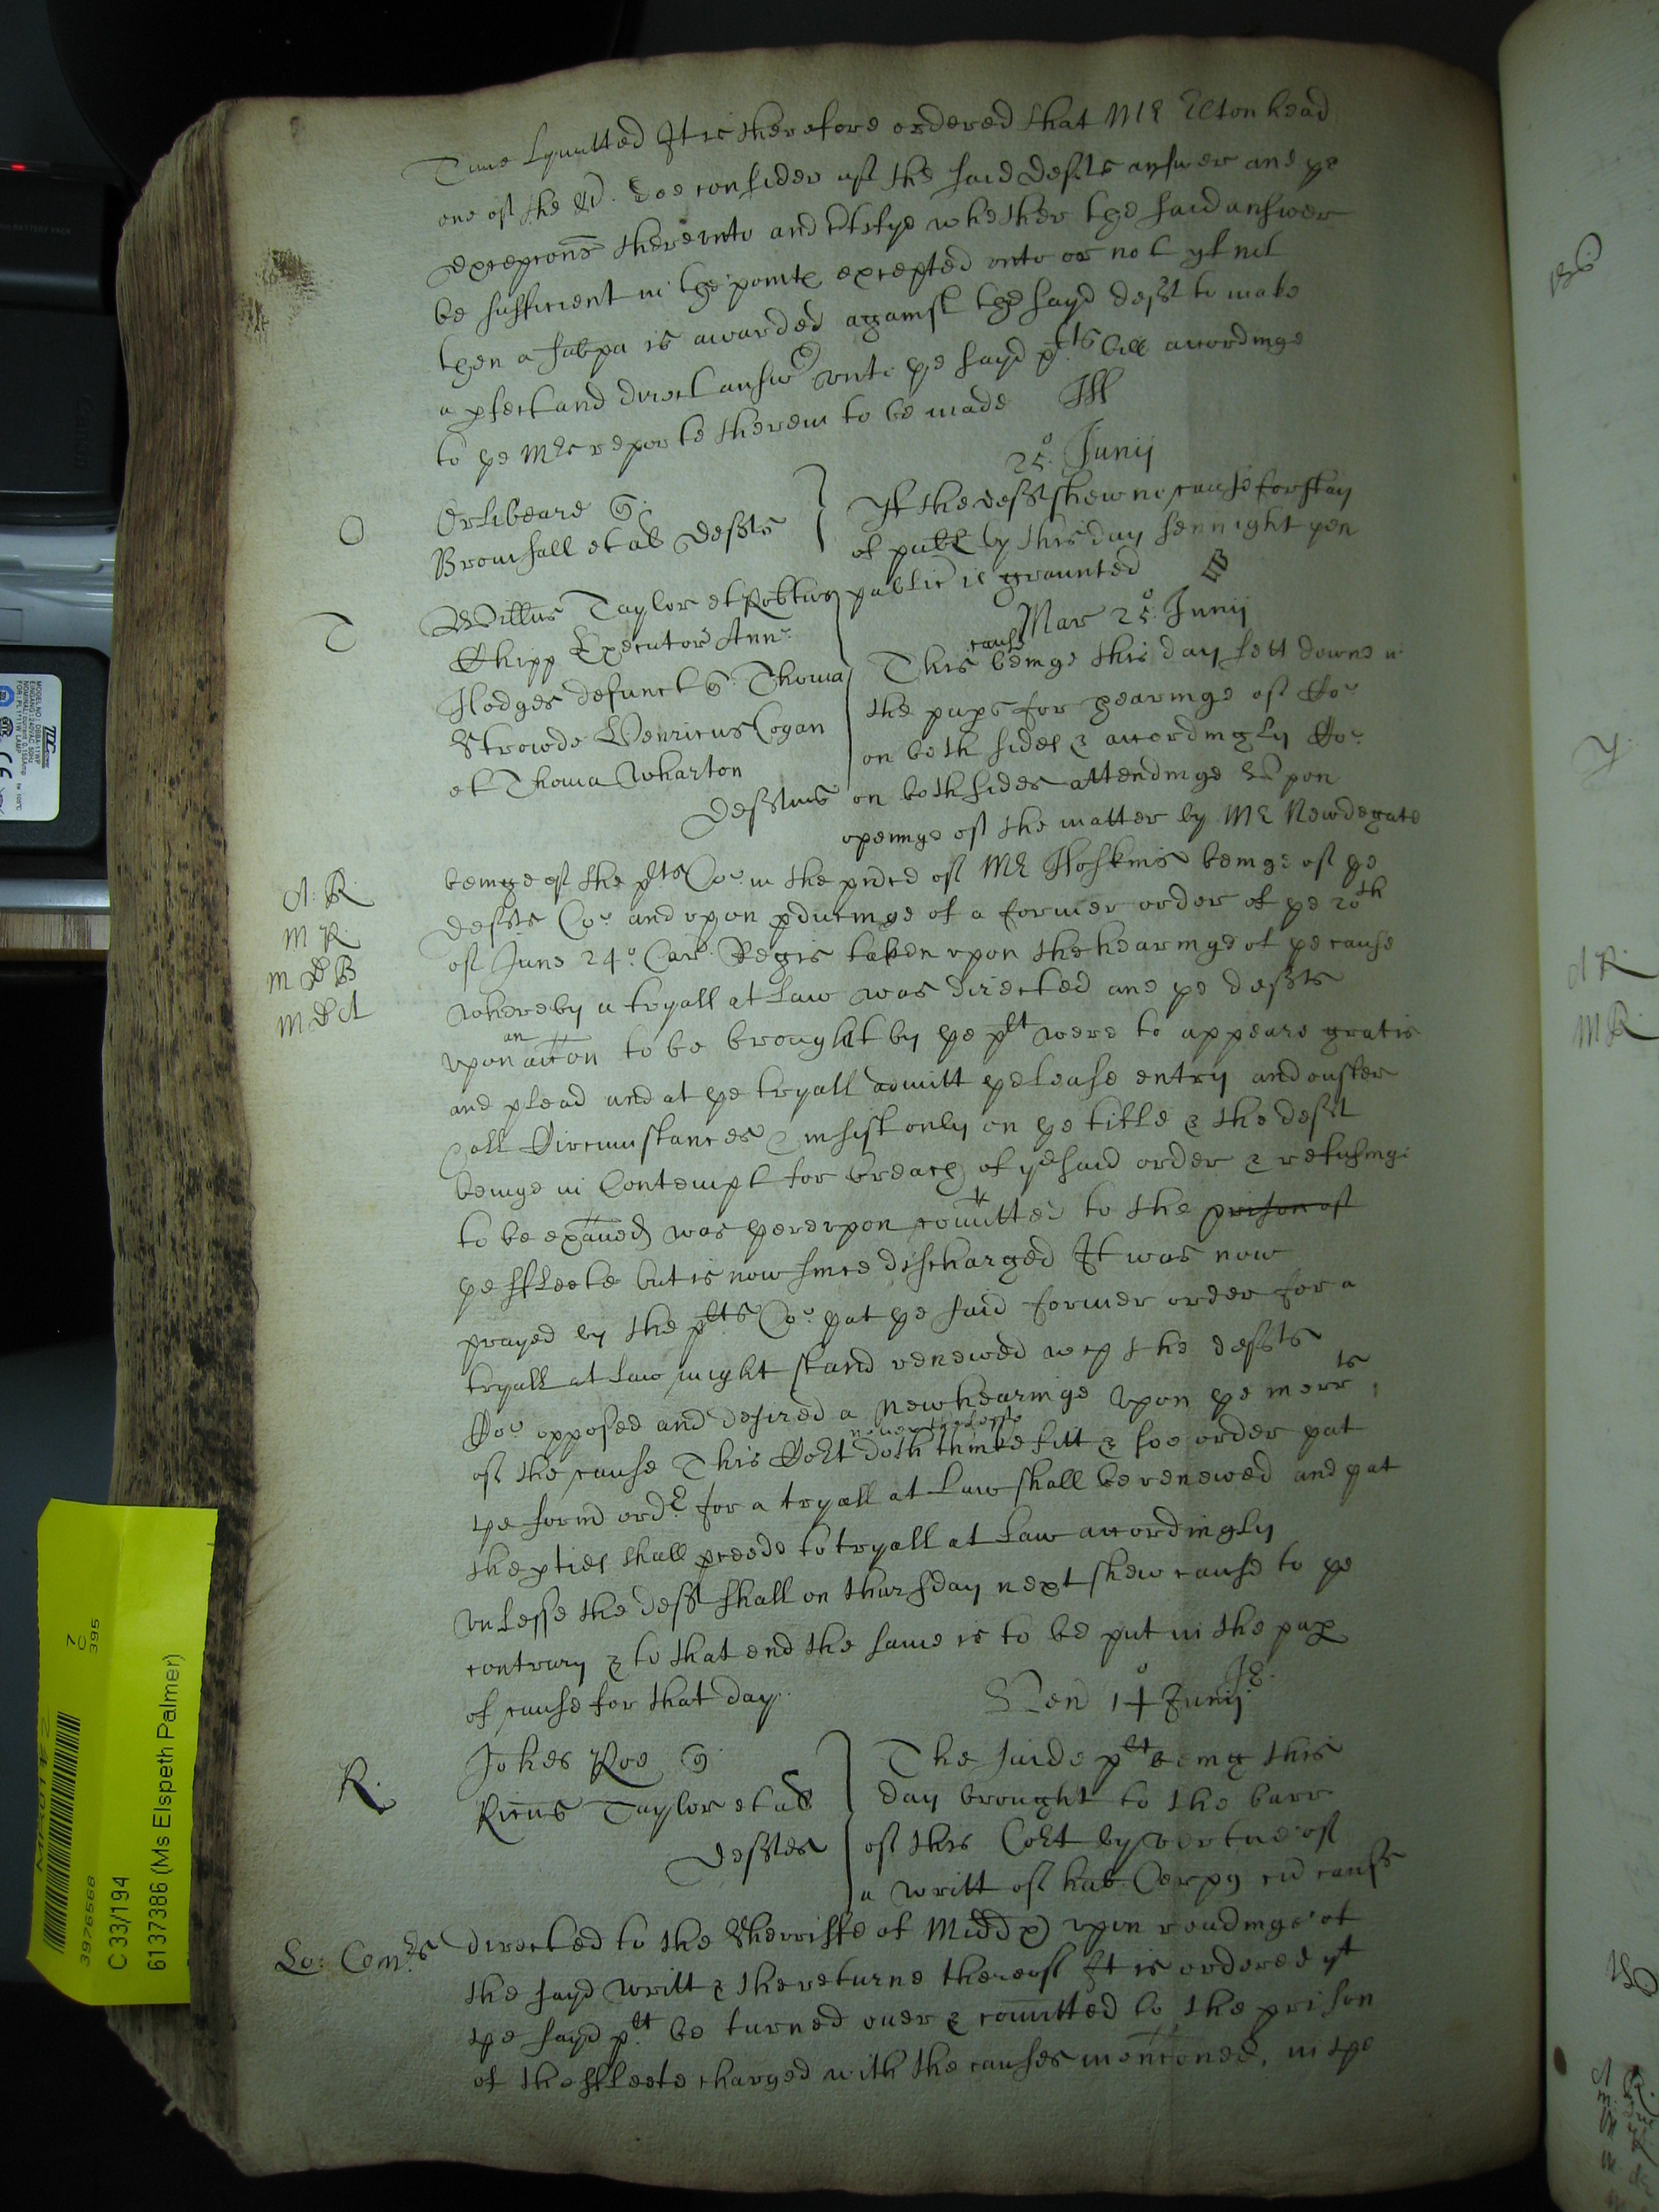 Time lymitted It is therefore ordered that Mr Eltonhead
one of the Mr. doe consider of the said defts answer and ye
excepcons thereunto and certifye whether the said answer
be sufficient in the points excepted unto or not yf not
then a subpa is awarded against the sayd deft to make
a pfect and direct answr unto ye sayd plts bill accordinge
to ye Mrs reporte therein to be made
25o Junij
O Orlibeare
Bromsall et al defts
If the deft shew no cause for stay
of publ by this day sennight then
public is graunted
T Willus Taylor et Robtus
Shipp Executor Ann
Hodges defunct Thoma
Strowde Henricus Cogan
et Thoma Wharton
deftms
Mar 25o Junij
This cause beinge this day sett downe in
the pap for hearinge of Co
on both sides & accordingly Co
on both sides attendinge Upon
openinge of the matter by Mr Newdegate
beinge of the plts Co in the pnce of Mr Hoskins beinge of ye
A. R. defts Co and upon pducinge of a former order of ye 20th
M R of June 24o Car Regis taken upon the hearinge of ye cause
M & B whereby a tryall at law was directed and ye defts
M & A upon an accon to be brought by ye plt were to appeare gratis
and plead and at ye tryall admitt ye lease entry and ouster
& all Circumstances & insist only on ye title & the deft
beinge in Contempt for breach of ye said order & refusinge
to be examed was thereupon comitted to the prison of
ye ffleete but is now since discharged It was now
prayed by the plts Co that ye said former order for a
tryall at law might stand renewed wch the defts
Co opposed and desired a new hearinge upon ye merits
of the cause This Cort neverthelesse doth thinke fitt & soe order that
the formr ordr for a tryall at Law shall be renewed and that
the pties shall pceede to tryall at law accordingly
unlesse the deft shall on thursday next shew cause to ye
contrary & to that end the same is to be put in the pap
of cause for that day
Ven 14o Junij
R. Johes Roe
Ricus Taylor et al
deftes
The saide plt being this
day brought to the barr
of this Cort by vertue of
a writt of hab Corps cu causa
Lo: Comrs directed to the Sherriffe of Midd upon readinge of
the sayd writt & the returne thereof It is ordered yt
the sayd plt be turned over & comitted to the prison
of the ffleete charged with the causes menconed, in the
MKU142
7
C
395
3976568
C 33/194
6137386 (Ms Elspeth Palmer)
Canon
TDC